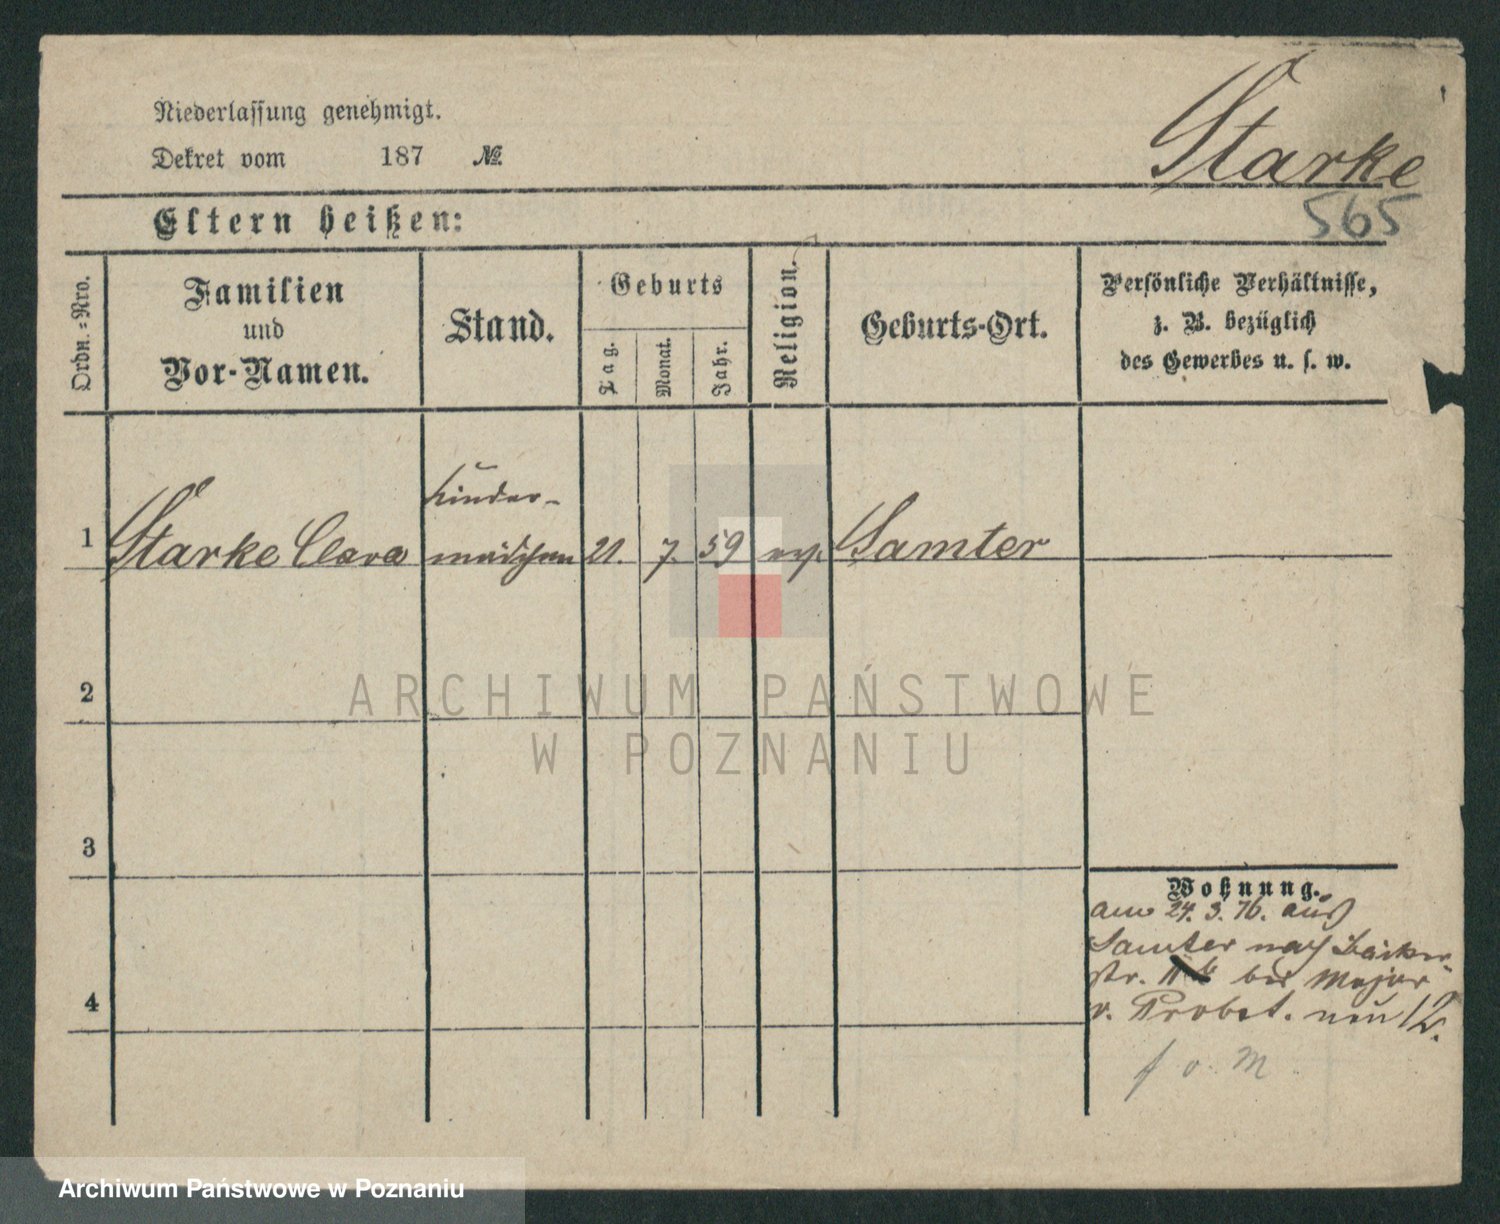 Niederlassung genehmigt.
Dekret vom 187 №
Starke
565
Eltern heißen:
Ordn.=Nro.
Familien
und
Vor-Namen.
Stand.
Geburts
Tag.
Monat.
Jahr.
Religion.
Geburts-Ort.
Persönliche Verhältnisse,
z. B. bezüglich
des Gewerbes u. s. w.
1
Starke Clara
Kinder-
mädchen
21. 7. 59
Samter
2
3
4
ARCHIWUM PAŃSTWOWE
W POZNANIU
Wohnung.
am 24. 3. 76. aus
Samter nach Bäcker-
str. bei Major
v. Probst. neu 12.
Archiwum Państwowe w Poznaniu